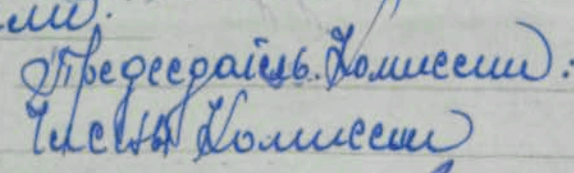 ми.
Председатель Комиссии:
Члены Комиссии